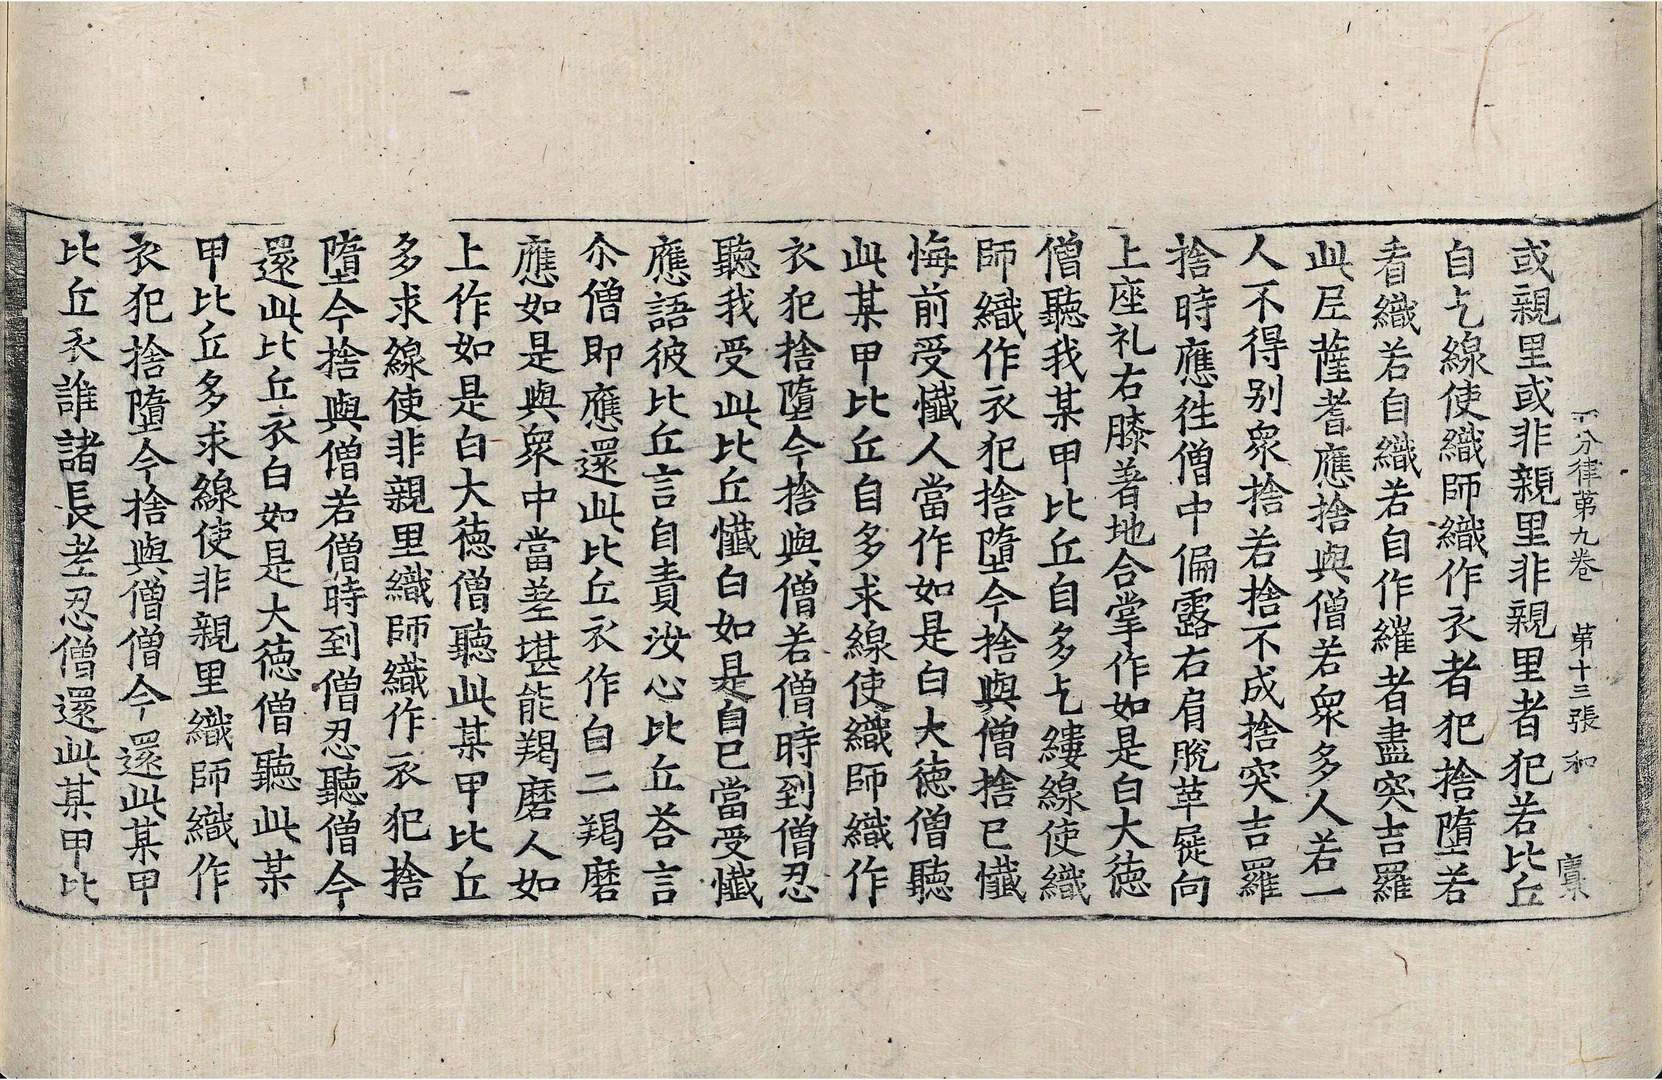 分律第九卷 第十三張 和
或親里或非親里非親里者犯若比丘
自乞線使織師織作衣者犯捨墮若
看織若自織若自作繀者盡突吉羅
此尼薩耆應捨與僧若衆多人若一
人不得别衆捨若捨不成捨突吉羅
捨時應徃僧中偏露右肩脫革屣向
上座礼右膝著地合掌作如是白大德
僧聽我某甲比丘自多乞縷線使織
師織作衣犯捨墮今捨與僧捨已懺
悔前受懺人當作如是白大德僧聽
此某甲比丘自多求線使織師織作
衣犯捨墮今捨與僧若僧時到僧忍
聽我受此比丘懺白如是白已當受懺
應語彼比丘言自責汝心比丘荅言
尒僧即應還此比丘衣作白二羯磨
應如是與衆中當差堪能羯磨人如
上作如是白大德僧聽此某甲比丘
多求線使非親里織師織作衣犯捨
墮今捨與僧若僧時到僧忍聽僧今
還此比丘衣白如是大德僧聽此某
甲比丘多求線使非親里織師織作
衣犯捨墮今捨與僧僧今還此某甲
比丘衣誰諸長老忍僧還此某甲比